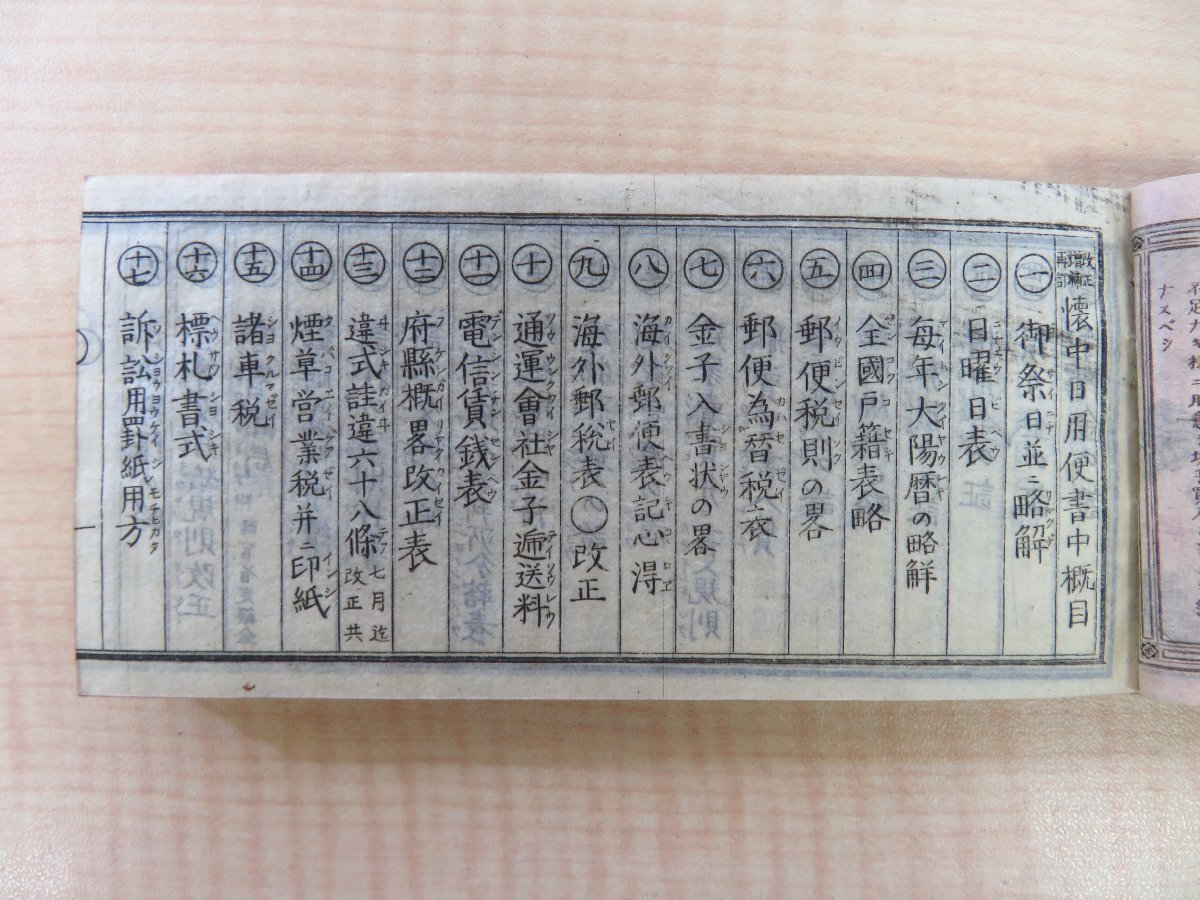 改正増補再刻 懐中日用便書中概目
㊀ 御祭日並ニ略解
㊁ 日曜日表
㊂ 毎年大陽暦の略觧
㊃ 全國戸籍表略
㊄ 郵便税則の畧
㊅ 郵便為替税表
㊆ 金子入書状の畧
㊇ 海外郵便表記心淂
㊈ 海外郵税表〇改正
㊉ 通運會社金子逓送料
十一 電信賃銭表
十二 府縣概畧改正表
十三 違式詿違六十八條 七月迄改正共
十四 煙草営業税并ニ印紙
十五 諸車税
十六 標札書式
十七 訴訟用罫紙用方
ナスベシ